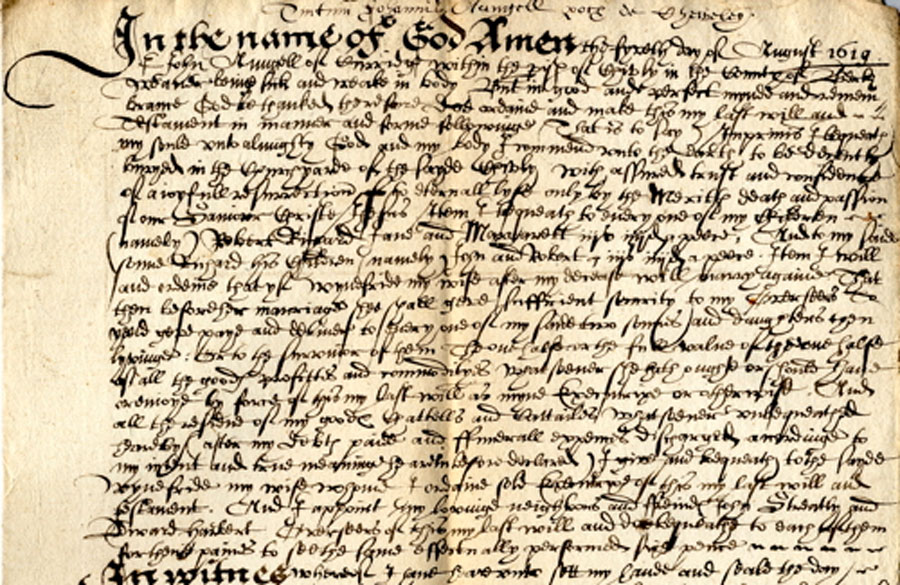 In the name of God Amen the fyveth day of August 1619
I John Aungell of within the of in the Countye of Berks
Weaver being sick and weake in body But in good and perfect mynde and remem-
braunce God be thanked therefore Doe ordaine and make this my last will and
Testament in manner and forme followinge That is to say Imprimis I bequeath
my soule unto almighty God and my body I commend unto the earth to be decently
buryed in the Churcheyarde of the sayde with assured trust and confidence
of a ioyfull resurrection to eternall lyfe only by the Meritts death and passion
of our Saviour Christe Jhesus Item I bequeath to every one of my Children
(namely) Robert Richard Jane and Margarett a peece, And to my saide
sonne Richard his Children (namely) John and Robert a peece. Item I will
and ordeine that yf Wynefride my wife after my decease will marry againe That
then before her marriadge she shall geve sufficient security to my Overseers to
yeeld geve paye and deliver to every one of my saide two sonnes and daughters then
lyvinge: Or to the survivor of them The one halfe or the full valew of the one halfe
of all the goods profittes and commodityes whatsoever she hath ought or should have
or enioye by force of this my last will as myne Executrixe or otherwise. And
all the residue of my goods Cattells and Chattailes whatsoever unbequeathed
hereby (after my debts paide and ffunerall expences discharged accordinge to
my intent and true meaninge heretofore declared) I give and bequeath to the sayde
Wynefride my wife whome I ordaine sole Executrixe of this my last will and
testament. And I appoint my lovinge neighbours and ffreinds John and
Edward Overseers of this my last will and doe bequeathe to each of them
for their paines to see the same effectually performed sixe pence
In witnes whereof I have hereunto sett my hande and seale the day